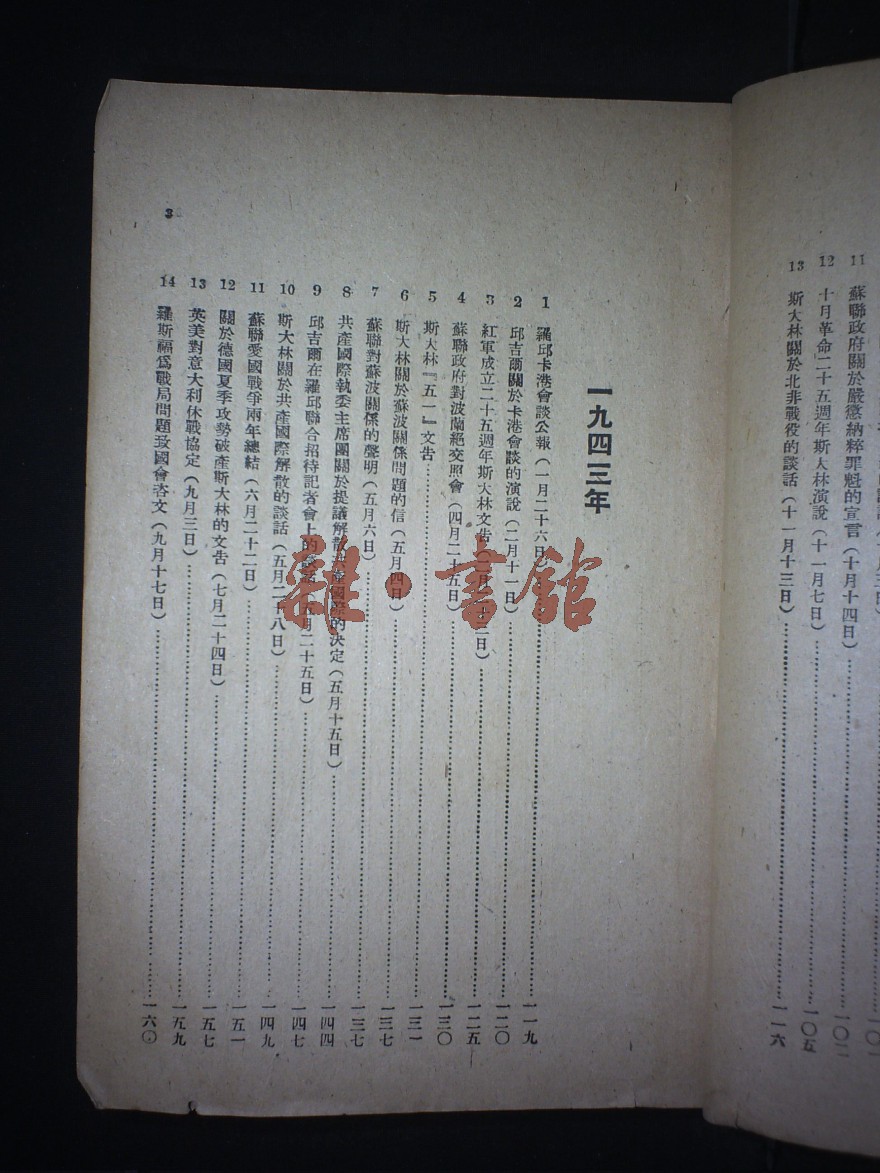 11 蘇聯政府關於嚴懲納粹罪魁的宣言(十月十四日)……一〇二
12 十月革命二十五週年斯大林演說(十一月七日)……一〇五
13 斯大林關於北非戰役的談話(十一月十三日)……一一六
一九四三年
1 羅邱卡港會談公報(一月二十六日)……一一九
2 邱吉爾關於卡港會談的演說(二月十一日)……一二〇
3 紅軍成立二十五週年斯大林文告(二月二十三日)……一二五
4 蘇聯政府對波蘭絕交照會(四月二十五日)……一三〇
5 斯大林『五一』文告……一三一
6 斯大林關於蘇波關係問題的信(五月四日)……一三七
7 蘇聯對蘇波關係的聲明(五月六日)……一三七
8 共產國際執委主席團關於提議解散共產國際的決定(五月十五日)……一四四
9 邱吉爾在羅邱聯合招待記者會上的談話(五月二十五日)……一四七
10 斯大林關於共產國際解散的談話(五月二十八日)……一四九
11 蘇聯愛國戰爭兩年總結(六月二十二日)……一五一
12 關於德國夏季攻勢破產斯大林的文告(七月二十四日)……一五七
13 英美對意大利休戰協定(九月三日)……一五九
14 羅斯福爲戰局問題致國會咨文(九月十七日)……一六〇
3
雜·書館